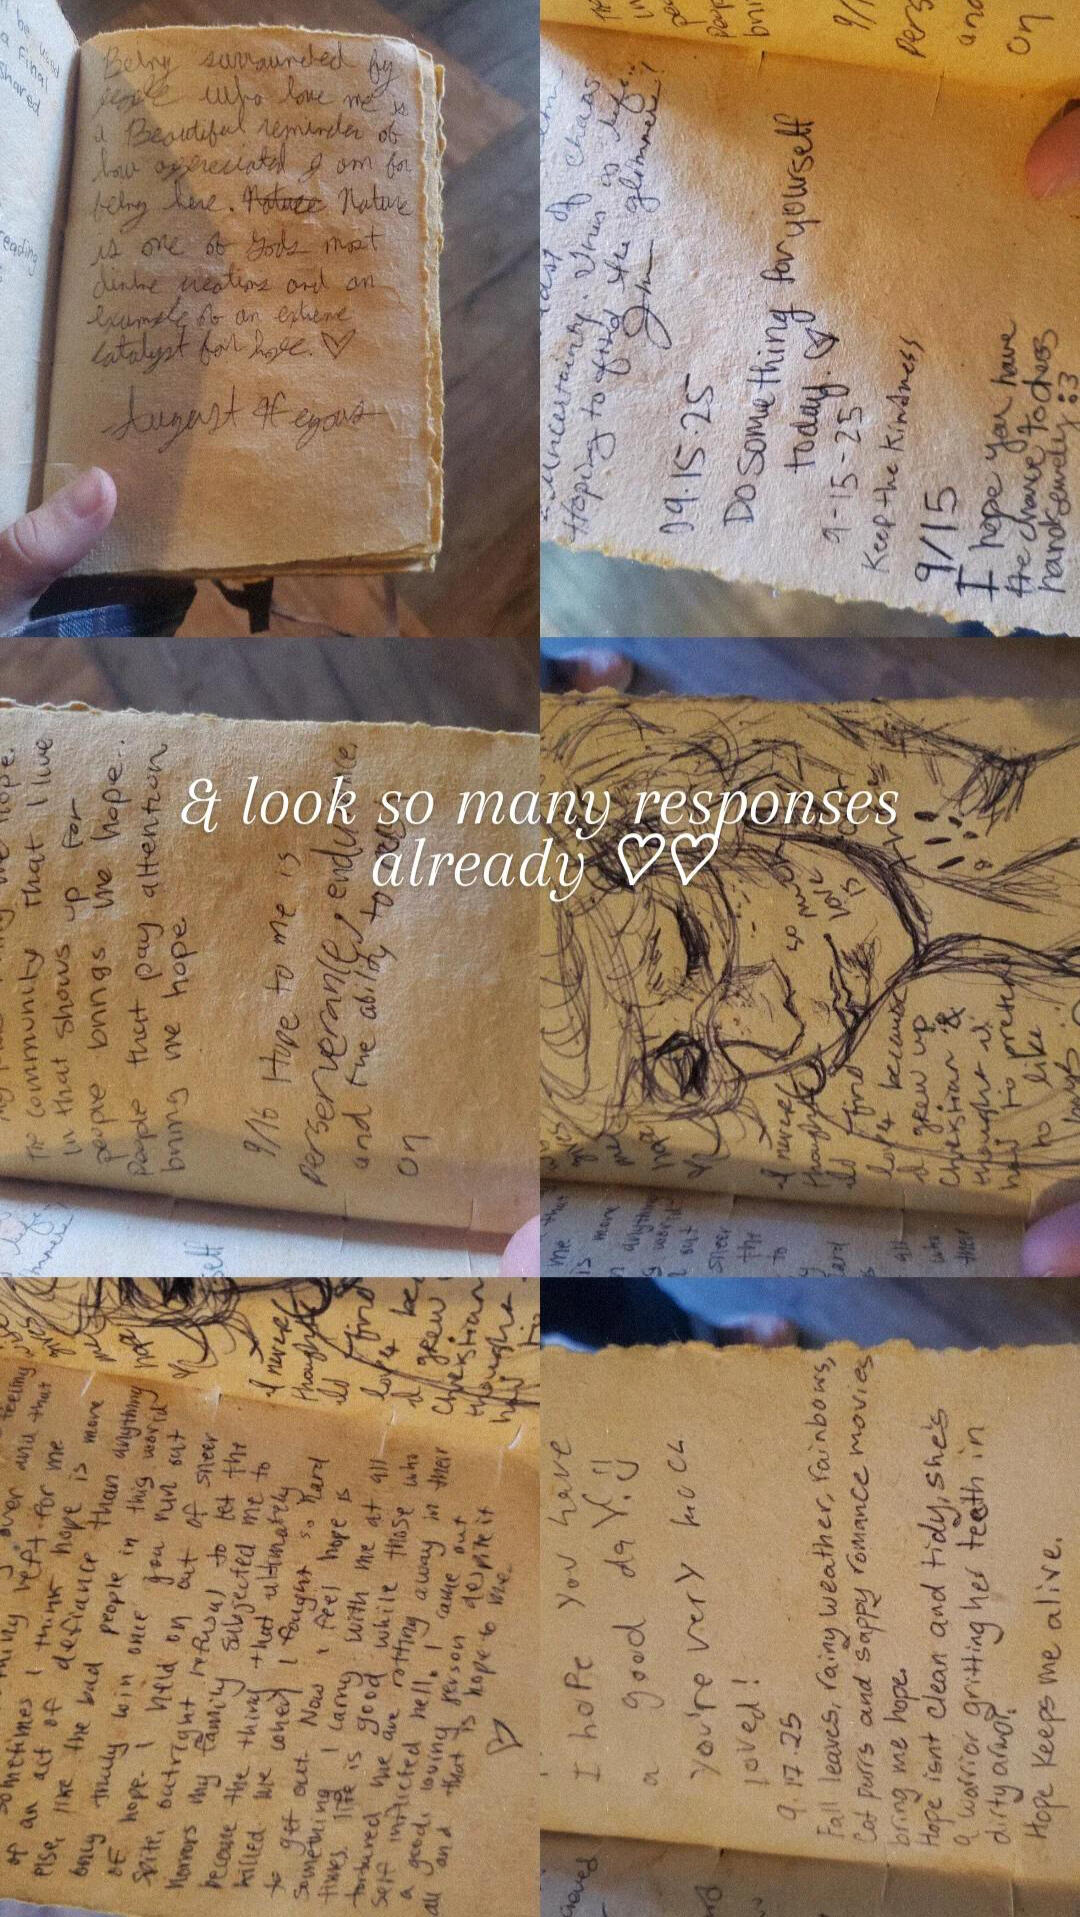 Being surrounded by
people who love me is
a Beautiful reminder of
how appreciated I am for
being here. Nature Nature
is one of Gods most
divine creations and an
example of an extreme
catalyst for hope. ♡
August
be used
a Final
shared
reading
of chaos
uncertainty. This is life...
Hoping to find the glimmers!
09.15.25
Do something for yourself
today. ♡
9-15-25
Keep the kindness,
9/15
I hope you have
the chance to chass
& look so many responses
already ♡♡
the community that I live
in that shows up for
people brings me hope...
people that pay attention
bring me hope
9/16 Hope to me is
perserverance, endurance,
and the ability to
on
so much
love
is
I never
thought
I'd find
love because
I grew up
Christian &
thought i'd
have to pretend
to like
boys :
sometimes I think hope is more
of an act of defiance than anything
else, like the bad people in this world
only truly win once you run out
of hope. I held on out of sheer
spite, outright refusal to let the
horrors my family subjected me to
become the thing that ultimately
killed me when I fought so hard
to get out. Now i feel hope is
something I carry with me at all
times. life is good while those who
tortured me are rotting away in their
self inflicted hell. I came out
a good, loving person despite it
all and that is hope to me.
♡
I hope you have
a good day. :)
you're very much
loved!
9.17.25
Fall leaves, rainy weather, rainbows,
Cat purrs and sappy romance movies
bring me hope.
Hope isnt clean and tidy, she's
a warrior gritting her teeth in
dirty armor.
Hope keeps me alive.